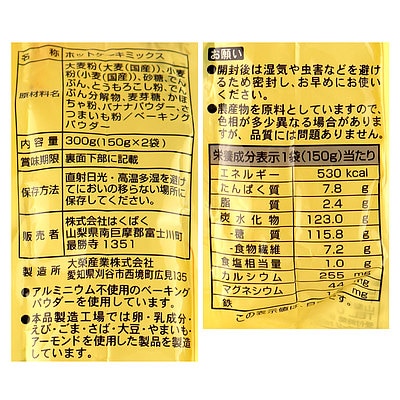 名称 ホットケーキミックス
原材料名 大麦粉(大麦(国産))、小麦
粉(小麦(国産))、砂糖、でん
ぷん、とうもろこし粉、でん
ぷん分解物、麦芽糖、かぼ
ちゃ粉、バナナパウダー、さ
つまいも粉／ベーキング
パウダー
内容量 300g(150g×2袋)
賞味期限 裏面下部に記載
保存方法 直射日光・高温多湿を避け
ておいの移らない場所に
保存してください。
販売者 株式会社はくばく
山梨県南巨摩郡富士川町
最勝寺1351
製造所 大榮産業株式会社
愛知県刈谷市西境町広見135
●アルミニウム不使用のベーキング
パウダーを使用しています。
●本品製造工場では卵・乳成分・
えび・ごま・さば・大豆・やまいも・
アーモンドを使用した製品を製造
しています。
お願い
●開封後は湿気や虫害などを避け
るため密封し、お早めにお使い
ください。
●農産物を原料としていますので、
色相が多少異なる場合があります
が、品質には問題ありません。
栄養成分表示1袋(150g)当たり
エネルギー 530 kcal
たんぱく質 7.8 g
脂質 2.4 g
炭水化物 123.0 g
-糖質 115.8 g
-食物繊維 7.2 g
食塩相当量 1.0 g
カルシウム 255 mg
マグネシウム 44 mg
鉄 mg
この表示値は、